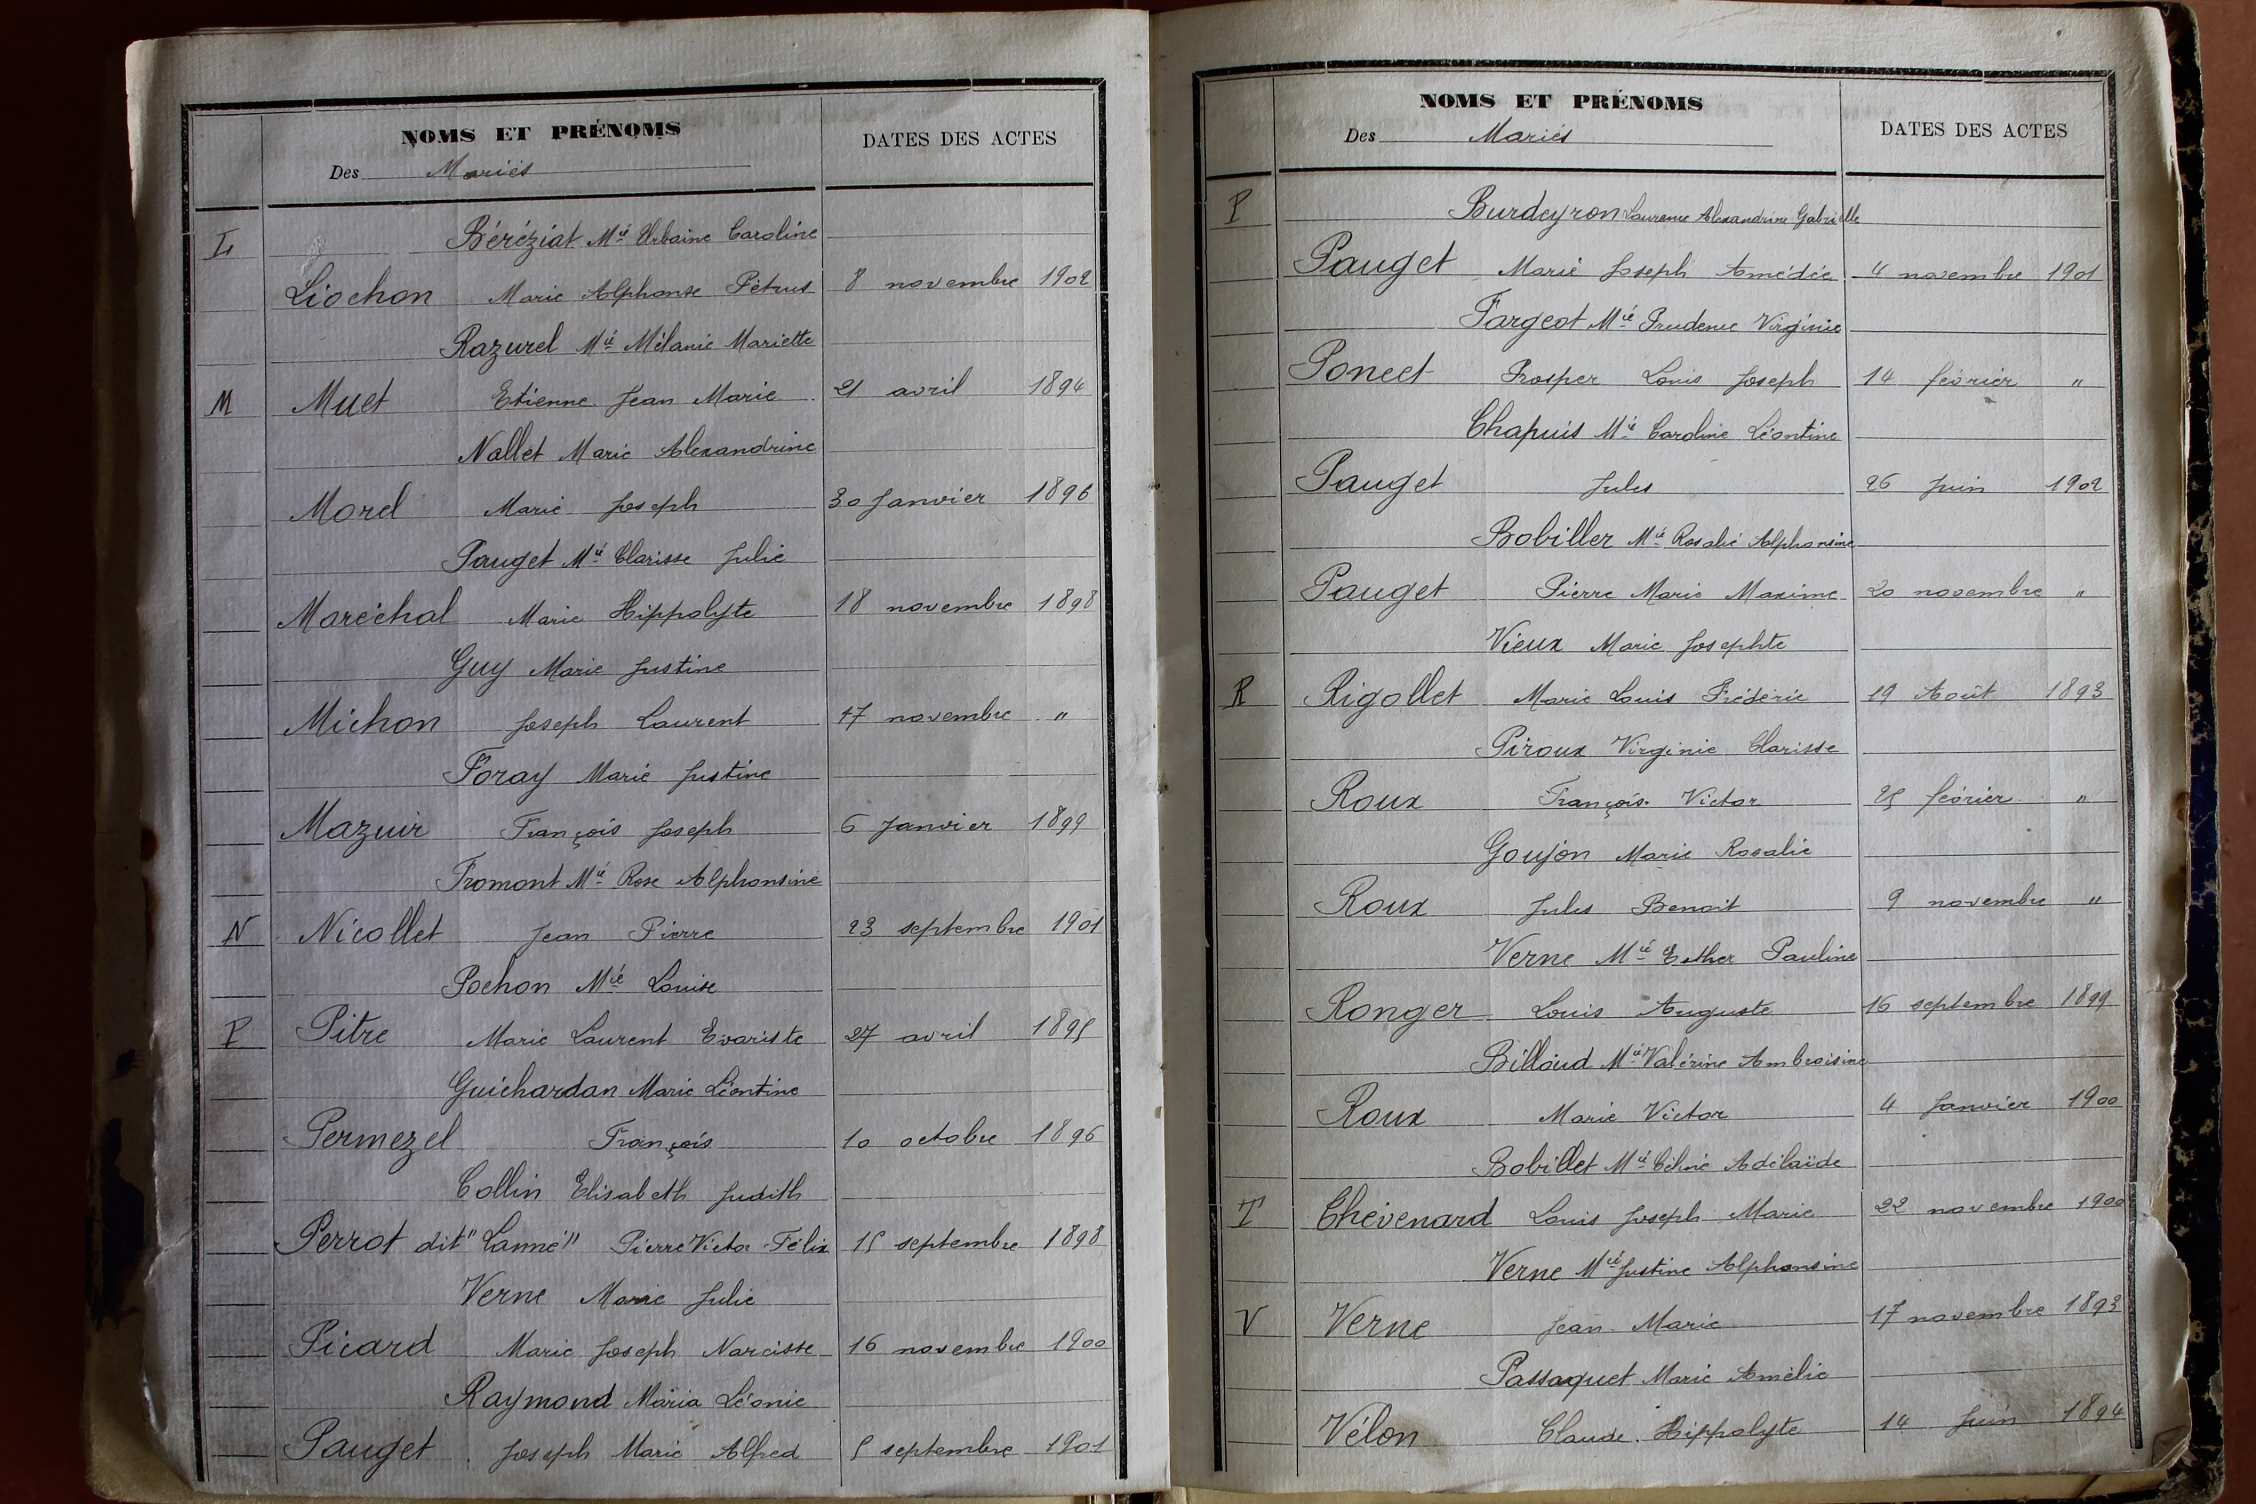 NOMS ET PRÉNOMS
Des Mariés
DATES DES ACTES
L Béréziat Mie Urbaine Caroline
Liochon Marie Alphonse Pétrus 8 novembre 1902
Razurel Mie Mélanie Mariette
M Muet Etienne Jean Marie 21 avril 1894
Nallet Marie Alexandrine
Morel Marie Joseph 30 Janvier 1896
Pauget Mie Clarisse Julie
Maréchal Marie Hippolyte 18 novembre 1898
Guy Marie Justine
Michon Joseph Laurent 17 novembre "
Foray Marie Justine
Mazuir François Joseph 6 Janvier 1899
Fromont Mie Rose Alphonsine
N Nicollet Jean Pierre 23 septembre 1901
Pochon Mie Louise
P Pitre Marie Laurent Evariste 27 avril 1895
Guichardan Marie Léontine
Permezel François 10 octobre 1896
Collin Elisabeth Judith
Perrot dit "Lanné" Pierre Victor Félix 15 septembre 1898
Verne Marie Julie
Picard Marie Joseph Narcisse 16 novembre 1900
Raymond Maria Léonie
Pauget Joseph Marie Alfred 5 septembre 1901
NOMS ET PRÉNOMS
Des Mariés
DATES DES ACTES
P Burdeyron Laurence Alexandrine Gabrielle
Pauget Marie Joseph Amédée 4 novembre 1901
Fargeot Mie Prudence Virginie
Poncet Prosper Louis Joseph 14 février "
Chapuis Mie Caroline Léontine
Pauget Jules 26 Juin 1902
Bobiller Mie Rosalie Alphonsine
Pauget Pierre Marie Maxime 20 novembre "
Vieux Marie Josephte
R Rigollet Marie Louis Frédéric 19 Août 1893
Piroux Virginie Clarisse
Roux François Victor 25 février "
Goujon Marie Rosalie
Roux Jules Benoit 9 novembre "
Verne Mie Esther Pauline
Ronger Louis Auguste 16 septembre 1899
Billoud Mie Valérine Ambroisine
Roux Marie Victor 4 Janvier 1900
Bobillet Mie Céline Adélaïde
T Thevenard Louis Joseph Marie 22 novembre 1900
Verne Mie Justine Alphonsine
V Verne Jean Marie 17 novembre 1893
Passaquet Marie Amélie
Vélon Claude Hippolyte 14 Juin 1894